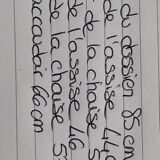 du dossier 85 cm
de l'assise 44
de la chaise 5
de l'assise 46
de la chaise 5
accoudoir 66 cm